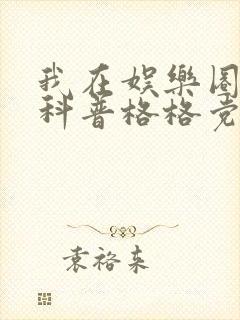 我在娱樂圈
科普格格党
袁裕来